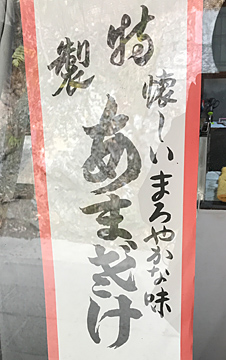 特製
懐しいまろやかな味
あまざけ